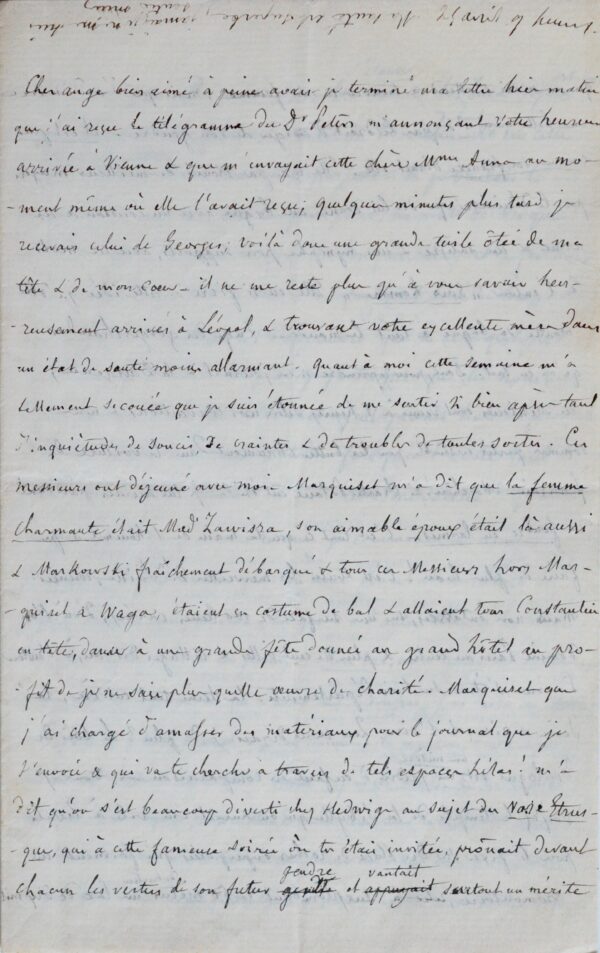 25 avril 9 heures.
Cher ange bien aimé à peine avais je terminé ma lettre hier matin
que j'ai reçu le télégramme du Dr Peters m'annonçant votre heureuse
arrivée à Vienne & que m'envoyait cette chère Mme Anna au mo-
-ment même où elle l'avait reçue; quelques minutes plus tard je
recevais celui de Georges; voilà donc une grande tuile ôtée de ma
tête & de mon cœur - il ne me reste plus qu'à vous savoir heu-
-reusement arrivés à Léopol, & trouvant votre excellente mère dans
un état de santé moins allarmant. Quant à moi cette semaine m'a
tellement secouée que je suis étonnée de me sentir si bien après tant
d'inquiétudes, de soucis, de craintes & de troubles de toutes sortes. Ces
messieurs ont déjeuné avec moi. Marquiset m'a dit que la femme
charmante était Mad. Zawisza, son aimable époux était là aussi
& Markowski fraîchement débarqué & tous ces Messieurs hors Mar-
-quiset & Waga, étaient en costume de bal & allaient tous Constantin
en tête, danser à une grande fête donnée au grand hôtel au pro-
-fit de je ne sais plus quelle œuvre de charité. Marquiset que
j'ai chargé d'amasser des matériaux pour le journal que je
t'envoie & qui va te chercher à travers de tels espaces hélas! m'a
dit qu'on s'est beaucoup diverti chez Hedwige au sujet du Vase Etrus-
-que, qui à cette fameuse soirée où tu étais invitée, prônait devant
chacun les vertus de son futur gendre et vantait surtout un mérite